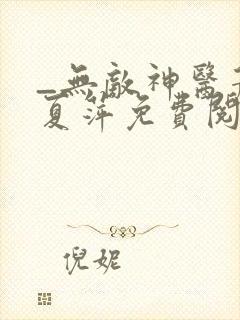 _無敵神醫
夏萍免費閱
倪妮